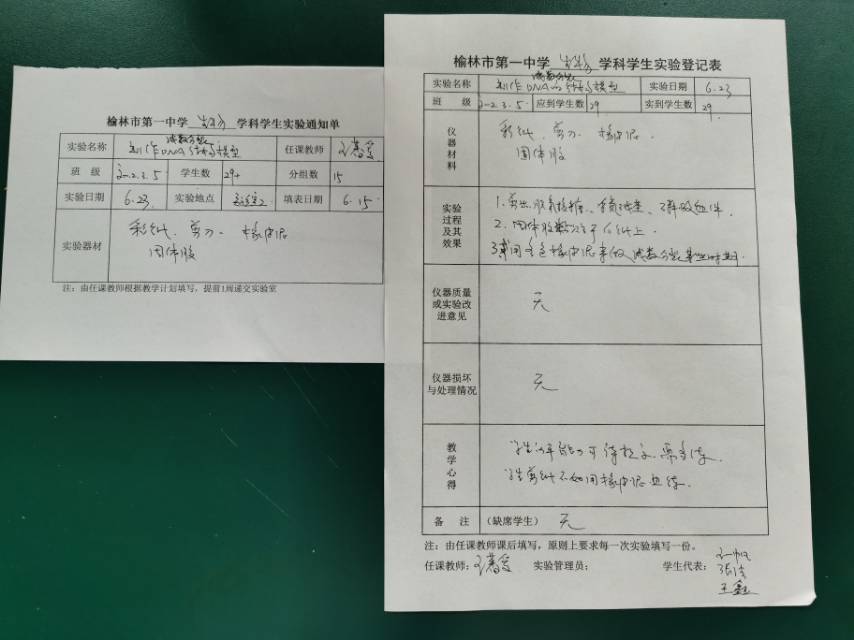 榆林市第一中学 生物 学科学生实验通知单
实验名称 减数分裂 制作DNA结构模型 任课教师
班 级 2.3.5 学生数 29 分组数 15
实验日期 6.23 实验地点 填表日期 6.15
实验器材 彩纸、剪刀、橡皮泥
固体胶
注：由任课教师根据教学计划填写，提前1周递交实验室
榆林市第一中学 生物 学科学生实验登记表
实验名称 减数分裂 制作DNA的结构模型 实验日期 6.23
班 级 2.3.5 应到学生数 29 实到学生数 29
仪器材料 彩纸、剪刀、橡皮泥、
固体胶
实验过程及其效果 1.剪出脱氧核糖、含氮碱基、磷酸组件.
2.固体胶 于A4纸上.
3. 用 色橡皮泥来做减数分裂 时期.
仪器质量或实验改进意见 无
仪器损坏与处理情况 无
教学心得 学生动手能力 待提高，需多练.
学生剪纸不如用橡皮泥 练.
备 注 （缺席学生） 无
注：由任课教师课后填写，原则上要求每一次实验填写一份。
任课教师： 实验管理员： 学生代表：
王鑫